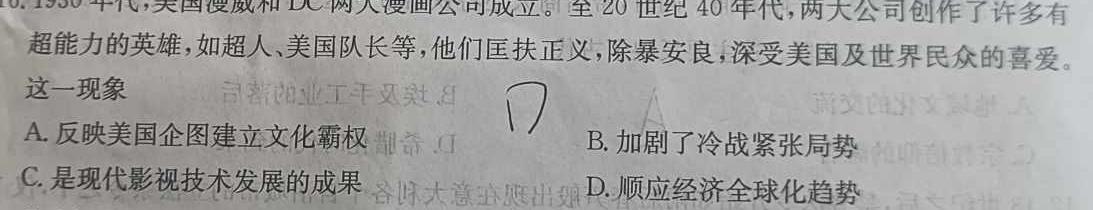 1930年代,美国漫威和DC两大漫画公司成立。至20世纪40年代,两大公司创作了许多有
超能力的英雄,如超人、美国队长等,他们匡扶正义,除暴安良,深受美国及世界民众的喜爱。
这一现象
D
A. 反映美国企图建立文化霸权 B. 加剧了冷战紧张局势
C. 是现代影视技术发展的成果 D. 顺应经济全球化趋势